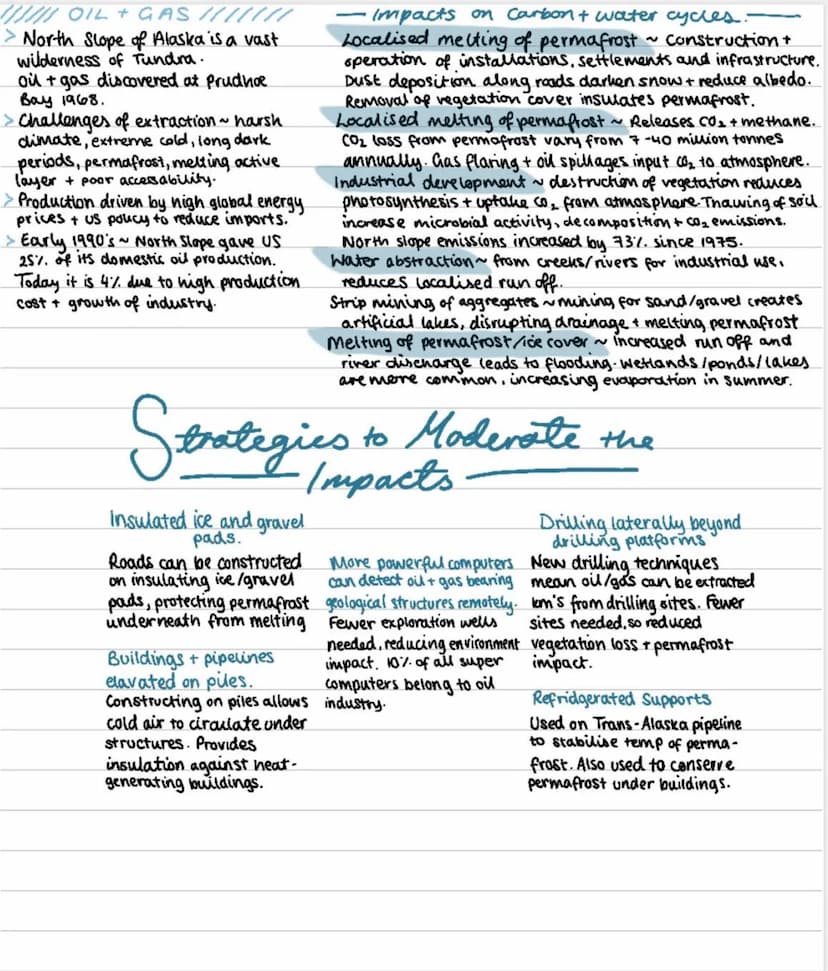 OIL + GAS
> North Slope of Alaska is a vast
wilderness of Tundra.
oil + gas discovered at Prudhoe
Bay 1968.
> Challenges of extraction ~ harsh
climate, extreme cold, long dark
periods, permafrost, melting active
layer + poor accessability.
> Production driven by high global energy
prices + US policy to reduce imports.
> Early 1990's ~ North Slope gave US
25% of its domestic oil production.
Today it is 4% due to high production
cost + growth of industry.
Impacts on Carbon + water cycles.
Localised melting of permafrost ~ Construction +
operation of installations, settlements and infrastructure.
Dust deposition along roads darken snow + reduce albedo.
Removal of vegetation cover insulates permafrost.
Localised melting of permafrost ~ Releases CO2 + methane.
CO2 loss from permafrost vary from 7-40 million tonnes
annually. Gas flaring + oil spillages input CO2 to atmosphere.
Industrial development ~ destruction of vegetation reduces
photosynthesis + uptake CO2 from atmosphere. Thawing of soil
increase microbial activity, decomposition + CO2 emissions.
North slope emissions increased by 73% since 1975.
Water abstraction ~ from creeks/rivers for industrial use,
reduces localised run off.
Strip mining of aggregates ~ mining for sand/gravel creates
artificial lakes, disrupting drainage + melting permafrost
Melting of permafrost/ice cover ~ increased run off and
river discharge leads to flooding. Wetlands/ponds/lakes
are more common, increasing evaporation in summer.
Strategies to Moderate the
Impacts
Insulated ice and gravel
pads.
Roads can be constructed
on insulating ice/gravel
pads, protecting permafrost
underneath from melting
Buildings + pipelines
elavated on piles.
Constructing on piles allows
cold air to circulate under
structures. Provides
insulation against heat-
generating buildings.
More powerful computers
can detect oil + gas bearing
geological structures remotely.
Fewer exploration wells
needed, reducing environment
impact. 10% of all super
computers belong to oil
industry.
Drilling laterally beyond
drilling platforms
New drilling techniques
mean oil/gas can be extracted
km's from drilling sites. Fewer
sites needed, so reduced
vegetation loss + permafrost
impact.
Refridgerated Supports
Used on Trans-Alaska pipeline
to stabilise temp of perma-
frost. Also used to conserve
permafrost under buildings.